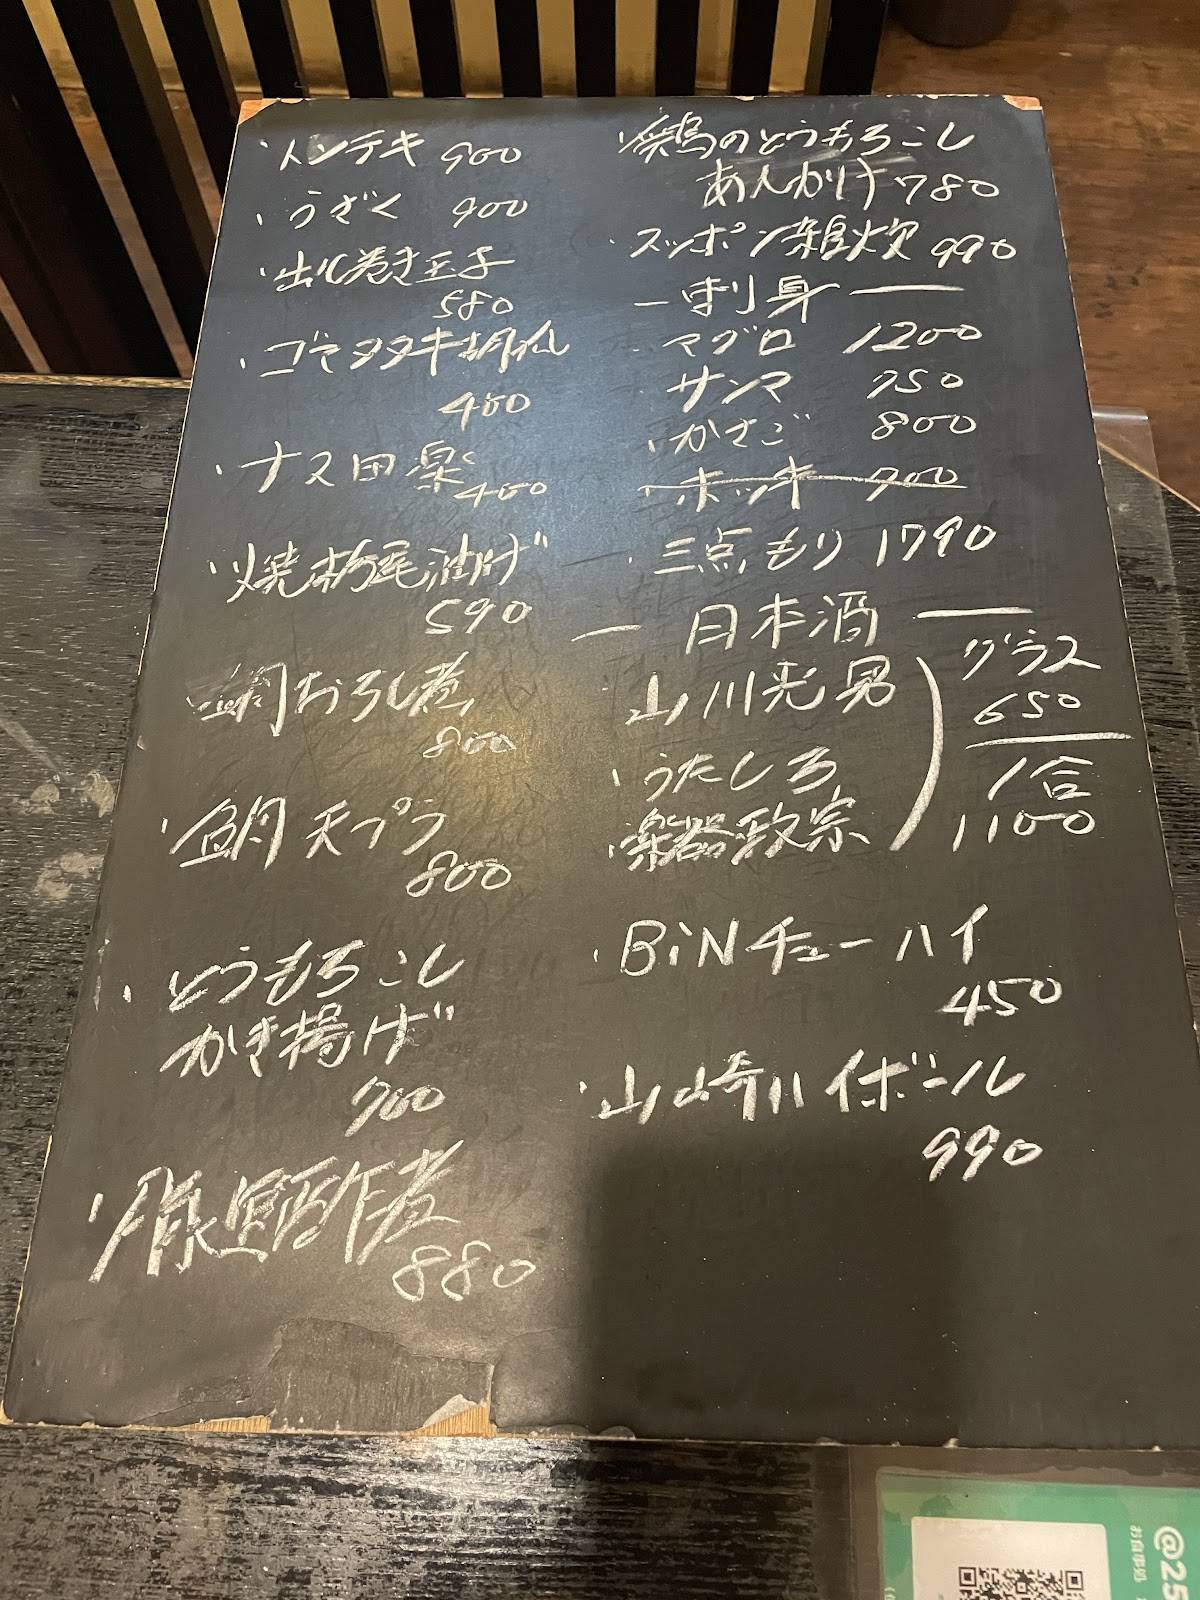 ・トンテキ 900
・うざく 900
・出し巻き玉子
580
・ゴマタタキ胡瓜
400
・ナス田楽
400
・焼栃尾油げ
590
・鯛おろし煮
800
・鯛天プラ
800
・とうもろこし
かき揚げ
700
・豚 煮
880
・鶏のとうもろこし
あんかけ 780
・スッポン雑炊 990
ー刺身ー
マグロ 1200
サンマ 750
・かさご 800
・ホッキ 900
・三点もり 1790
ー日本酒ー
山川光男
・うたしろ
・楽器政宗
グラス
650
1合
1100
・BiNチューハイ
450
・山崎ハイボール
990
@25
お食事処